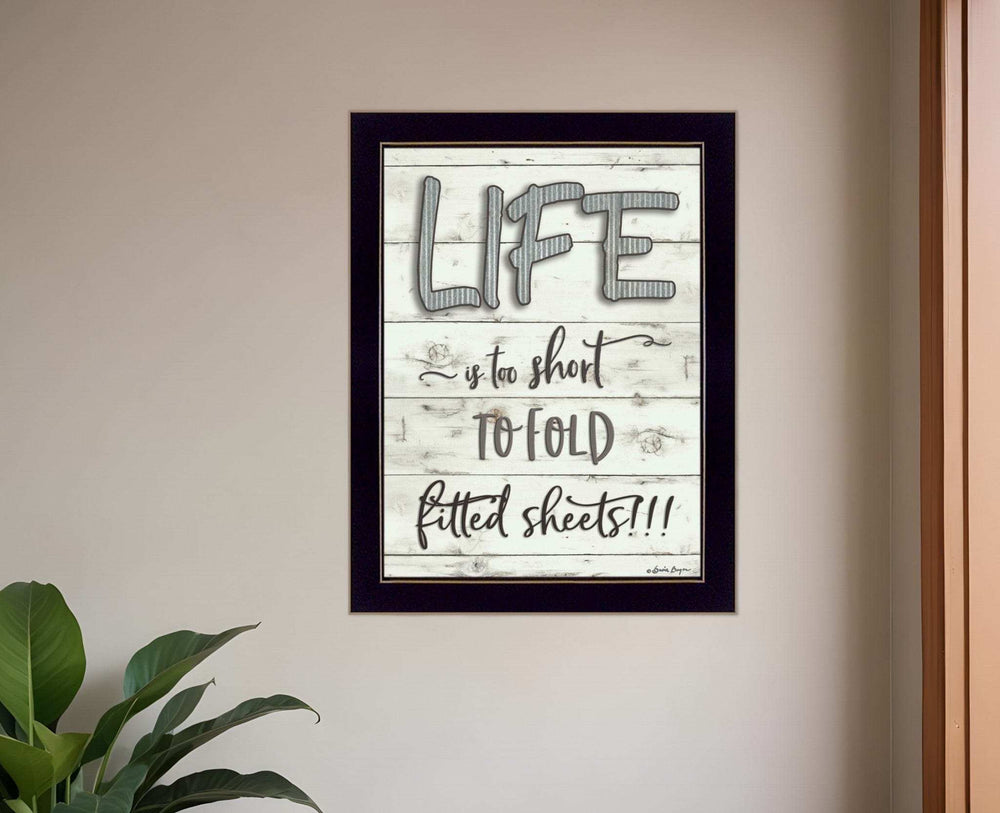 LIFE
is too short
TO FOLD
fitted sheets!!!